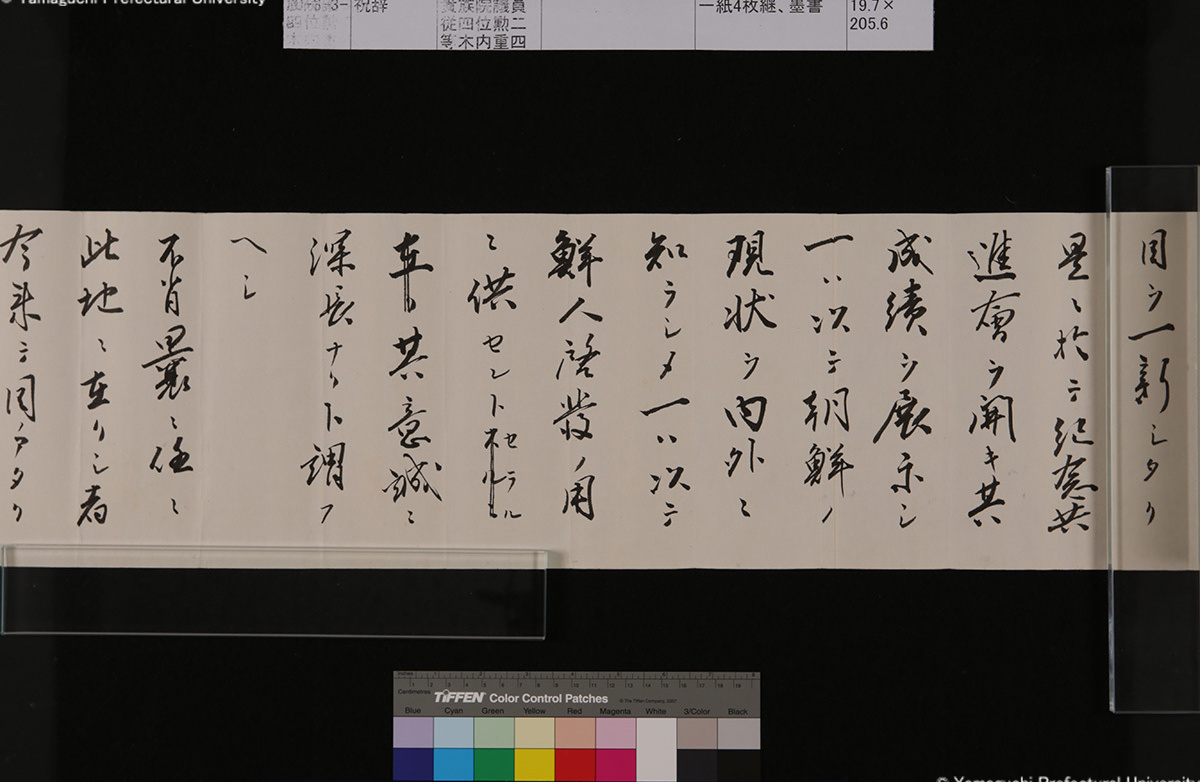 © Yamaguchi Prefectural University
祝辞
貴族院議員
従四位勲二
木内重四
一紙4枚継、墨書
19.7×
205.6
目ヲ一新シタリ
是ニ於テ紀念共
進會ヲ開キ其
成績ヲ展示シ
一ハ以テ朝鮮ノ
現状ヲ内外ニ
知ラシメ一ハ以テ
鮮人啓發ノ用
ニ供セント
セラル
其意誠ニ
深長ナリト謂フ
ヘシ
不肖曩ニ任ニ
此地ニ在リシ者
今来テ同
Inches
Centimetres
TIFFEN Color Control Patches
© The Tiffen Company, 2007
Blue Cyan Green Yellow Red Magenta White 3/Color Black
© Yamaguchi Prefectural University